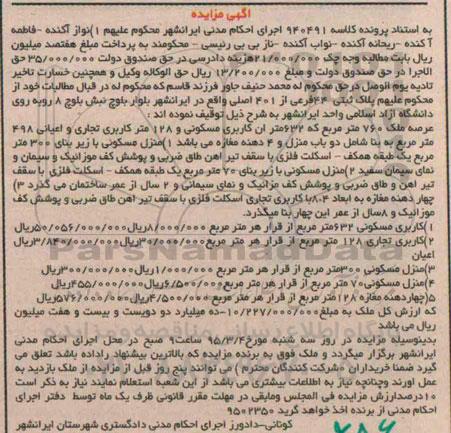 آگهی مزایده
به استناد پرونده کلاسه 940491 اجرای احکام مدنی ایرانشهر محکوم علیهم 1)نواز آکنده -فاطمه
آکنده -ریحانه آکنده -نواب آکنده -ناز بی بی رئیسی - محکومند به پرداخت مبلغ هفتصد میلیون
ریال بابت مطالبه وجه چک 21/000/000هزینه دادرسی در حق صندوق دولت 35/000/000 حق
الاجرا در حق صندوق دولت و مبلغ 13/200/000 ریال حق الوکاله وکیل و همچنین خسارت تاخیر
تادیه یوم الوصل در حق محکوم له محمد حنیف جاور فرزند قاسم که محکوم له در قبال مطالبات خود از
محکوم علیهم پلاک ثبتی 44فرعی از 401 اصلی واقع در ایرانشهر بلوار بلوچ نبش بلوچ 8 روبه روی
دانشگاه آزاد اسلامی واحد ایرانشهر به شرح ذیل توقیف نموده اند .
عرصه ملک 760 متر مربع که 632متر ان کاربری مسکونی و 128 متر کاربری تجاری و اعیانی 498
متر مربع به بنا شامل دو باب منزل و 4 دهنه مغازه می باشد 1)منزل مسکونی با زیر بنای 300 متر
مربع یک طبقه همکف - اسکلت فلزی با سقف تیر اهن طاق ضربی و پوشش کف موزائیک و سیمان و
نمای سیمان سفید 2)منزل مسکونی با زیر بنای 70 متر مربع یک طبقه همکف - اسکلت فلزی با سقف
تیر اهن و طاق ضربی و پوشش کف مزائیک و نمای سیمانی و 2 سال از عمر ساختمان می گذرد 3)
چهار دهنه مغازه به ابعاد 8.4با کاربری تجاری اسکلت فلزی با سقف تیر اهن طاق ضربی و پوشش کف
موزائیک و 8سال از عمر این چهار بنا میگذرد.
1)کاربری مسکونی 632متر مربع از قرار هر متر مربع 8/000/000ریال50/056/000/000ریال
2)کاربری تجاری 128 متر مربع از قرار هر متر مربع30/000/000ریال3/840/000/000ریال
اعیان
3)منزل مسکونی 300متر مربع از قرار هر متر مربع 1/000/000ریال300/000/000ریال
4)منزل مسکونی70 متر مربع از قرار هر متر مربع6/500/000ریال455/000/000ریال
5)چهاردهنه مغازه 128متر مربع از قرار هر متر مربع 4/500/000ریال576/000/000ریال
که ارزش کل ملک به مبلغ10/227/000/000-ده میلیارد دو دویست و بیست و هفت میلیون
ریال می باشد
بدینوسیله مزایده در روز سه شنبه مورخ95/3/4 ساعت9 صبح در محل اجرای احکام مدنی
ایرانشهر برگزار میگردد و ملک فوق به برنده مزایده که بالاترین پیشنهاد راداده باشد تعلق می
گیرد ضمنا خریداران ( شرکت کنندگان محترم) می توانند پنج روز قبل از مزایده از ملک بازدید به
عمل اورند وچنانچه نیاز به اطلاعات بیشتری می باشد از این شعبه استعلام نمایند نیاز به ذکر است
10درصدارزش مزایده فی المجلس ومابقی در مهلت مقرر قانونی ظرف یک ماه توسط دفتر اجرای
احکام مدنی از برنده اخذ خواهد گرید 9502350
کوتانی-دادورز اجرای احکام مدنی دادگستری شهرستان ایرانشهر
ParsNamadData
پایگاه اطلاع رسانی مناقصه و مزایده